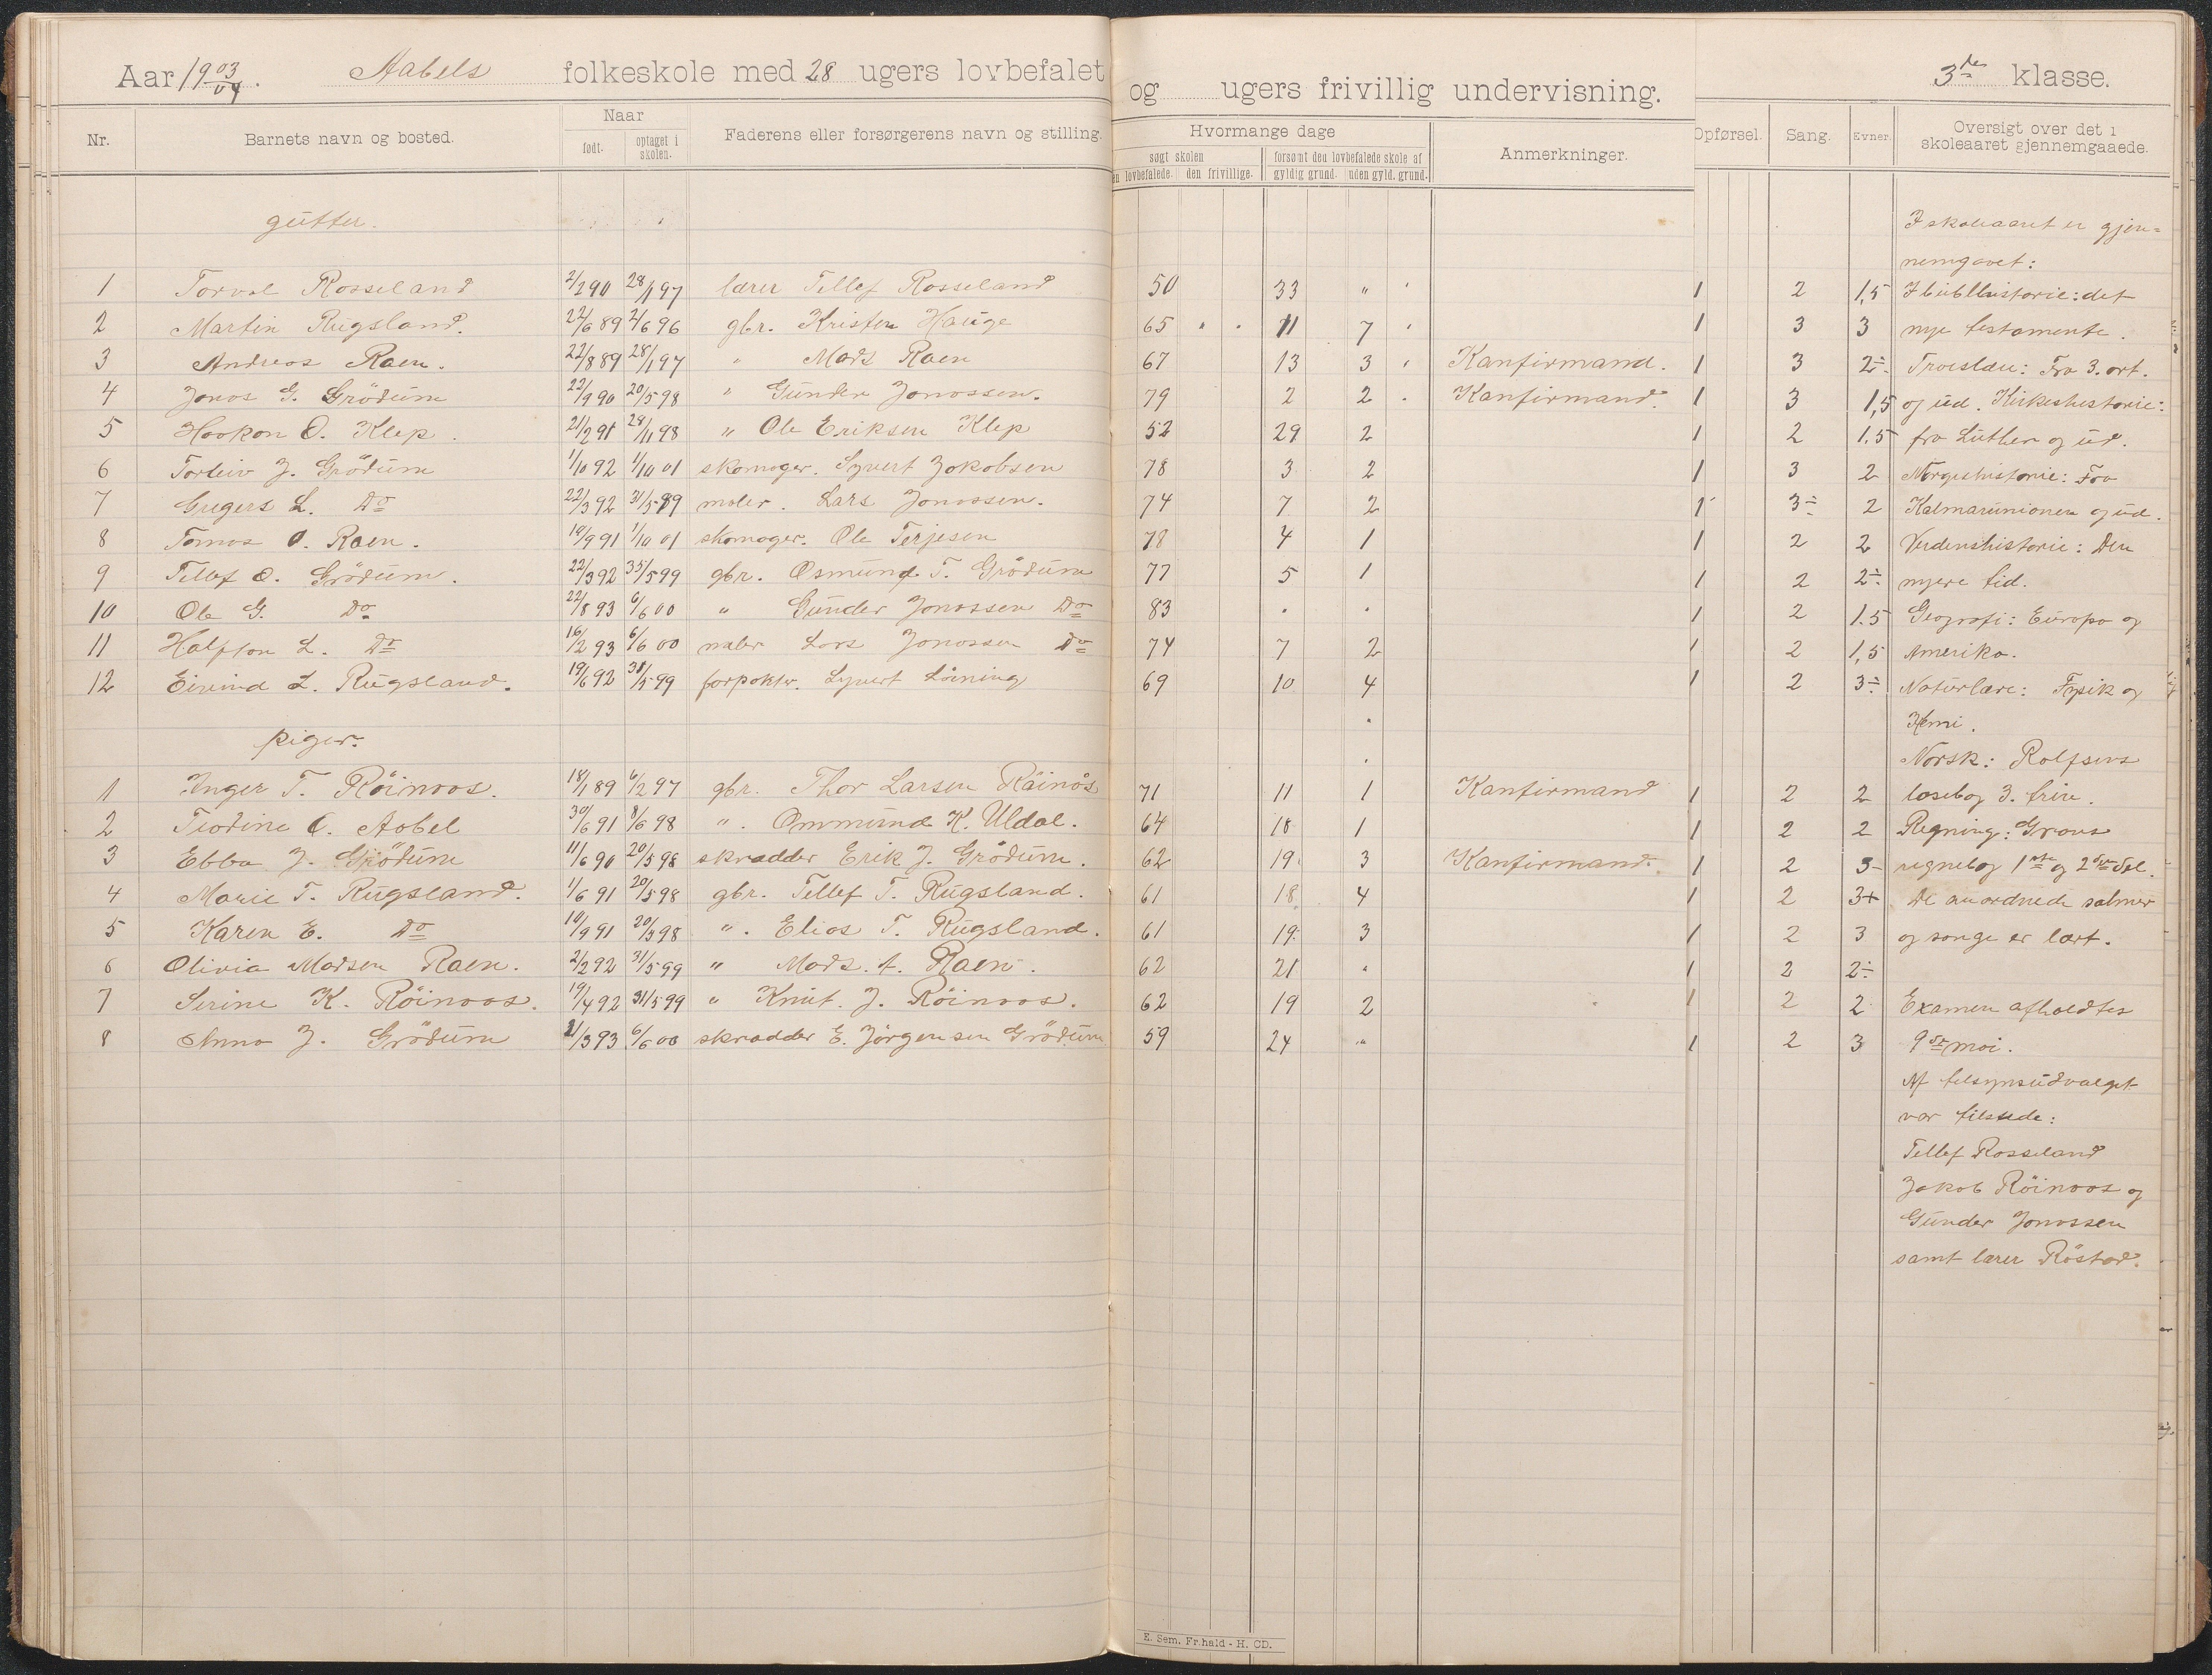 Aar 1903/04. Aabels folkeskole med 28 ugers lovbefalet og ugers frivillig undervisning. 3die klasse.
Nr. Barnets navn og bosted. Naar født. optaget i skolen. Faderens eller forsørgerens navn og stilling.
Hvormange dage søgt skolen en lovbefalede. den frivillige. forsømt den lovbefalede skole af gyldig grund. uden gyld. grund. Anmerkninger.
Opførsel. Sang. Evner. Oversigt over det i skoleaaret gjennemgaaede.
gutter.
1 Torval Rosseland 2/2 90 28/1 97 lærer Tellef Rosseland 50 33 " 1 2 1,5
2 Martin Rugsland. 22/6 89 2/6 96 gbr. Kristen Hauge 65 " " 11 7 1 3 3
3 Andreas Raen. 22/8 89 28/1 97 " Mads Raen 67 13 3 Kanfirmand. 1 3 2÷
4 Jonas G. Grödum 22/9 90 20/5 98 " Gunder Jonassen. 79 2 2 Kanfirmand. 1 3 1,5
5 Haakon O. Klep. 21/2 91 28/11 98 " Ole Eriksen Klep 52 29 2 1 2 1.5
6 Torleiv J. Grödum 1/10 92 1/10 01 skomager. Syvert Jakobsen 78 3 2 1 3 2
7 Gregers L. Do 22/3 92 31/5 99 maler. Lars Jonassen. 74 7 2 1 3÷ 2
8 Tomas O. Raen. 10/9 91 1/10 01 skomager. Ole Terjesen 78 4 1 1 2 2
9 Tellef O. Grödum. 22/3 92 35/5 99 gbr. Osmund T. Grödum 77 5 1 1 2 2÷
10 Ole G. Do 22/8 93 6/6 00 " Gunder Jonassen Do 83 " " 1 2 1.5
11 Halfdan L. Do 16/2 93 6/6 00 maler Lars Jonassen Do 74 7 2 1 2 1,5
12 Eivind L. Rugsland. 19/6 92 31/5 99 forpakter. Syvert Löining 69 10 4 1 2 3÷
piger.
1 Inger T. Röinaas. 18/1 89 6/2 97 gbr. Thor Larsen Röinås 71 11 1 Kanfirmand 1 2 2
2 Teodine O. Aabel 30/6 91 8/6 98 ". Ommund K. Uldal. 64 18 1 1 2 2
3 Ebba J. Grödum 11/6 90 20/5 98 skradder Erik J. Grödum. 62 19. 3 Kanfirmand. 1 2 3-
4 Marie T. Rugsland. 1/6 91 20/5 98 gbr. Tellef T. Rugsland. 61 18 4 1 2 3+
5 Karen E. Do 10/9 91 20/5 98 ". Elias T. Rugsland. 61 19. 3 1 2 3
6 Olivia Madsen Raen. 2/2 92 31/5 99 " Mads. A. Raen. 62 21 " 1 2 2÷
7 Serine K. Röinaas. 19/4 92 31/5 99 " Knut. J. Röinaas. 62 19 2 1 2 2
8 Anna J. Grödum 21/3 93 6/6 00 skradder E. Jörgensen Grödum 59 24 " 1 2 3
I skoleaaret er gjen=
nemgaaet:
I bibelhistorie: det
nye testamente.
Troeslære: Fra 3. art.
og ud. Kirkeshistorie:
fra Luther og ud.
Norgeshistorie: Fra
Kalmarunionen og ud.
Verdenshistorie: Den
nyere tid.
Geografi: Europa og
Amerika.
Naturlære: Fysik og
Kemi.
Norsk: Rolfsens
læsebog 3. trin.
Regning: Graus
regnebog 1ste og 2den Del.
De anordnede salmer
og sange er lært.
Examen afholdtes
9de mai.
Af tilsynsudvalget
var tilstede:
Tellef Rosseland
Jakob Röinaas og
Gunder Jonassen
samt lærer Röstad.
E. Sem. Fr.hald - H. CD.